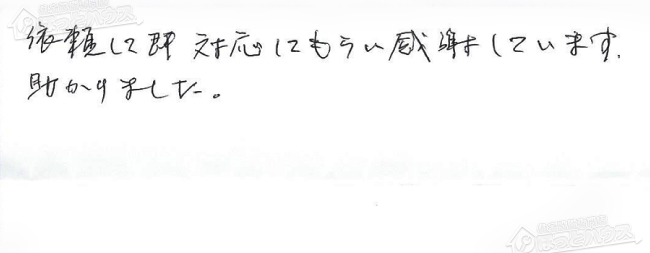 依頼して即対応してもらい感謝しています.
助かりました。